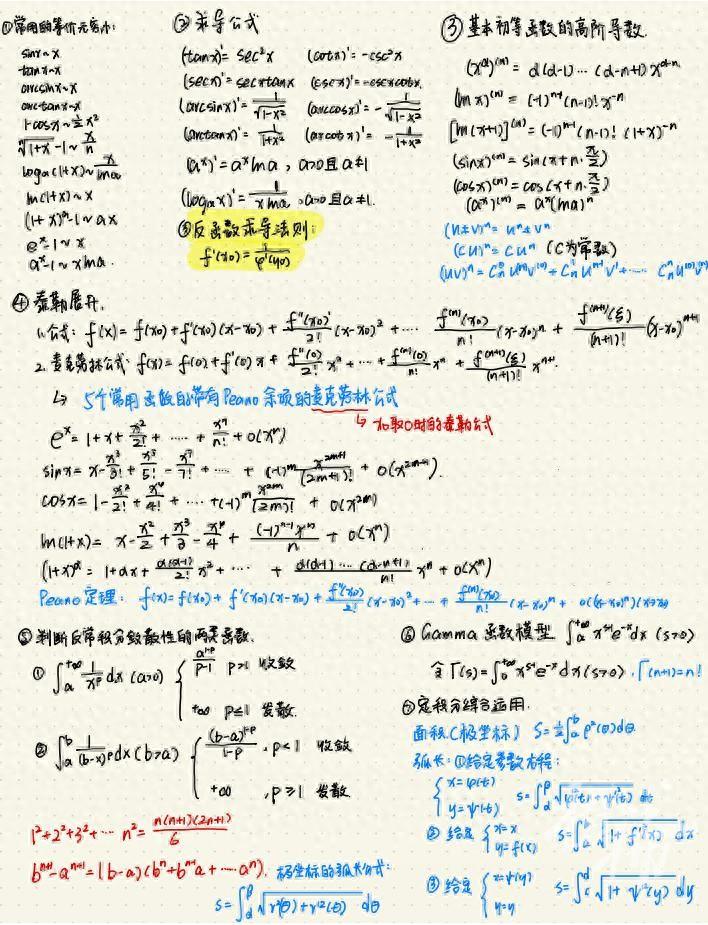 ①常用的等价无穷小:
sinx~x
tanx~x
arcsinx~x
arctanx~x
1-cosx~½x²
ⁿ√(1+x) -1~x/n
logₐ(1+x)~x/lna
ln(1+x)~x
(1+x)ᵅ-1~αx
eˣ-1~x
aˣ-1~xlna.
②求导公式
(tanx)'=sec²x (cotx)'=-csc²x
(secx)'=secxtanx (cscx)'=-cscxcotx.
(arcsinx)'=1/√(1-x²) (arccosx)'=-1/√(1-x²)
(arctanx)'=1/(1+x²) (arccotx)'=-1/(1+x²)
(aˣ)'=aˣlna, a>0且a≠1
(logₐx)'=1/(xlna), a>0且a≠1.
③反函数求导法则:
f'(x₀)=1/φ'(y₀)
③基本初等函数的高阶导数.
(x^α)^(n)=α(α-1)…(α-n+1)x^(α-n).
(lnx)^(n)=(-1)^(n-1)(n-1)!x^(-n)
[ln(x+1)]^(n)=(-1)^(n-1)(n-1)!(1+x)^(-n)
(sinx)^(n)=sin(x+n·π/2)
(cosx)^(n)=cos(x+n·π/2)
(aˣ)^(n)=aˣ(lna)ⁿ
(u±v)ⁿ=uⁿ±vⁿ
(cu)ⁿ=cuⁿ (C为常数)
④泰勒展开.
1.公式: f(x)=f(x₀)+f'(x₀)(x-x₀)+f''(x₀)/2!(x-x₀)²+…f^(n)(x₀)/n!(x-x₀)ⁿ+f^(n+1)(ξ)/(n+1)!(x-x₀)^(n+1)
2.麦克劳林公式: f(x)=f(0)+f'(0)x+f''(0)/2!x²+…+f^(n)(0)/n!xⁿ+f^(n+1)(ξ)/(n+1)!x^(n+1).
↳ 5个常用函数的带有Peano余项的麦克劳林公式
↳x₀取0时的泰勒公式
eˣ=1+x+x²/2!+……+xⁿ/n!+o(xⁿ)
sinx=x-x³/3!+x⁵/5!-x⁷/7!+…+(-1)^m x^(2m+1)/(2m+1)!+o(x^(2m+1)).
cosx=1-x²/2!+x⁴/4!+…+(-1)^m x^(2m)/(2m)!+o(x^(2m))
ln(1+x)=x-x²/2+x³/3-x⁴/4+(-1)^(n-1)xⁿ/n+o(xⁿ)
(1+x)^α=1+αx+α(α-1)/2!x²+……+α(α-1)…(α-n+1)/n!xⁿ+o(xⁿ)
Peano定理: f(x)=f(x₀)+f'(x₀)(x-x₀)+f''(x₀)/2!(x-x₀)²+…+f^(n)(x₀)/n!(x-x₀)ⁿ+o((x-x₀)ⁿ)(x→x₀)
⑤判断反常积分敛散性的两类函数.
①∫ₐ^(+∞) 1/x^p dx (a>0) { a^(1-p)/(p-1) p>1 收敛
+∞ p≤1 发散.
②∫ₐ^b 1/(b-x)^p dx (b>a) { (b-a)^(1-p)/(1-p), p<1 收敛
+∞, p≥1 发散
1²+2²+3²+…n²=n(n+1)(2n+1)/6
b^(n+1)-a^(n+1)=(b-a)(bⁿ+b^(n-1)a+…aⁿ).
极坐标的弧长公式:
S=∫_α^β √(r²(θ)+r'²(θ)) dθ
⑥Gamma函数模型 ∫₀^(+∞) x^(s-1)e^(-x)dx (s>0)
令Γ(s)=∫₀^(+∞) x^(s-1)e^(-x)dx(s>0), Γ(n+1)=n!
⑦定积分综合运用.
面积(极坐标) S=½∫_α^β ρ²(θ)dθ
弧长:①给定参数方程:
{x=φ(t)
y=ψ(t) S=∫_α^β √(φ'²(t)+ψ'²(t)) dt
②给定{x=x
y=f(x) S=∫ₐ^b √(1+f'²(x)) dx
③给定{x=ψ(y)
y=y S=∫_c^d √(1+ψ'²(y)) dy